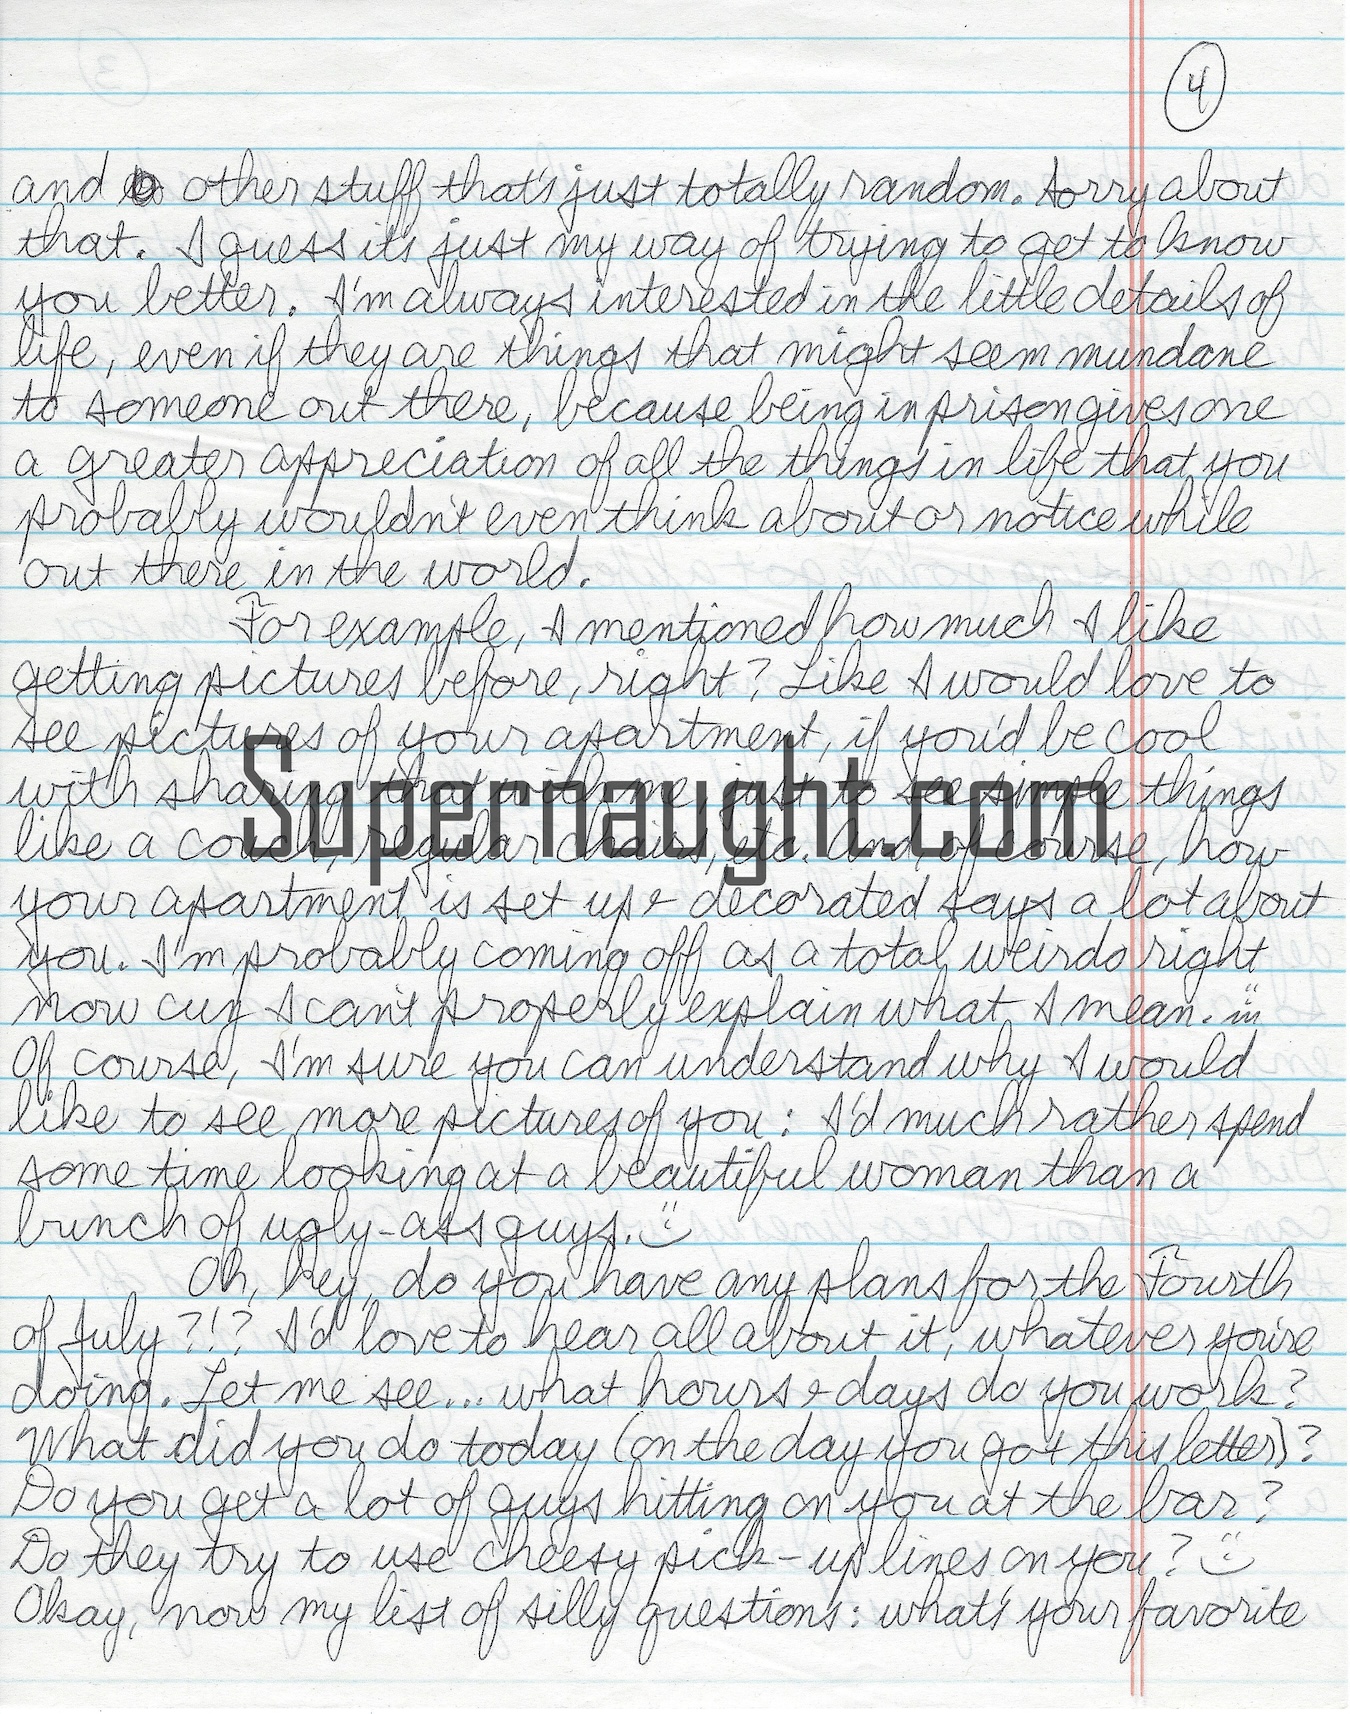 4
and other stuff that's just totally random. Sorry about
that. I guess it's just my way of trying to get to know
you better. I'm always interested in the little details of
life, even if they are things that might seem mundane
to someone out there, because being in prison gives one
a greater appreciation of all the things in life that you
probably wouldn't even think about or notice while
out there in the world.
For example, I mentioned how much I like
getting pictures before, right? Like I would love to
see pictures of your apartment, if you'd be cool
with sharing that with me, just to see simple things
Supernaught.com
like a couch, regular chairs, etc. And, of course, how
your apartment is set up & decorated says a lot about
you. I'm probably coming off as a total weirdo right
now cuz I can't properly explain what I mean.
Of course, I'm sure you can understand why I would
like to see more pictures of you: I'd much rather spend
some time looking at a beautiful woman than a
bunch of ugly-ass guys. :)
Oh, hey, do you have any plans for the Fourth
of July?!? I'd love to hear all about it, whatever you're
doing. Let me see... what hours & days do you work?
What did you do today (on the day you got this letter)?
Do you get a lot of guys hitting on you at the bar?
Do they try to use cheesy pick-up lines on you? :)
Okay, now my list of silly questions: what's your favorite